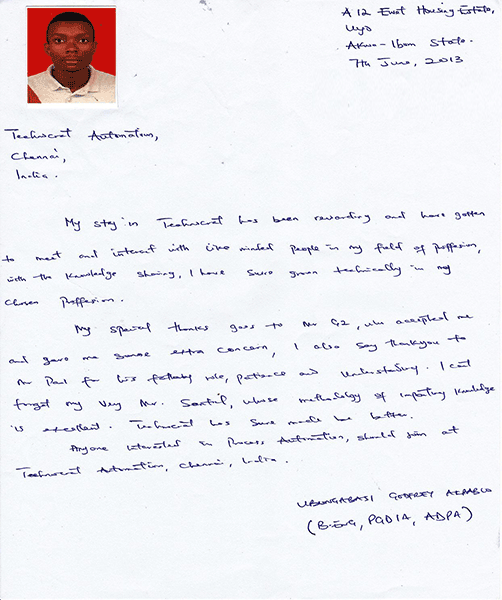 A 12 Ewet Housing Estate,
Uyo
Akwa-Ibom State.
7th June, 2013
Technocrat Automation,
Chennai,
India.
My stay in Technocrat has been rewarding and have gotten
to meet and interact with like minded people in my field of proffesion,
with the knowledge sharing, I have sure grown technically in my
chosen proffesion.
My special thanks goes to Mr G2, who accepted me
and gave me some extra concern, I also say thankyou to
Mr Paul for his fatherly role, patience and understanding. I cant
forget my very Mr. , whose methodology of imparting knowledge
is excellent. Technocrat has sure made me better.
Anyone interested in Process Automation, should join at
Technocrat Automation, Chennai, India.
GODFREY
(B.ENG, PGDIA, ADPA)